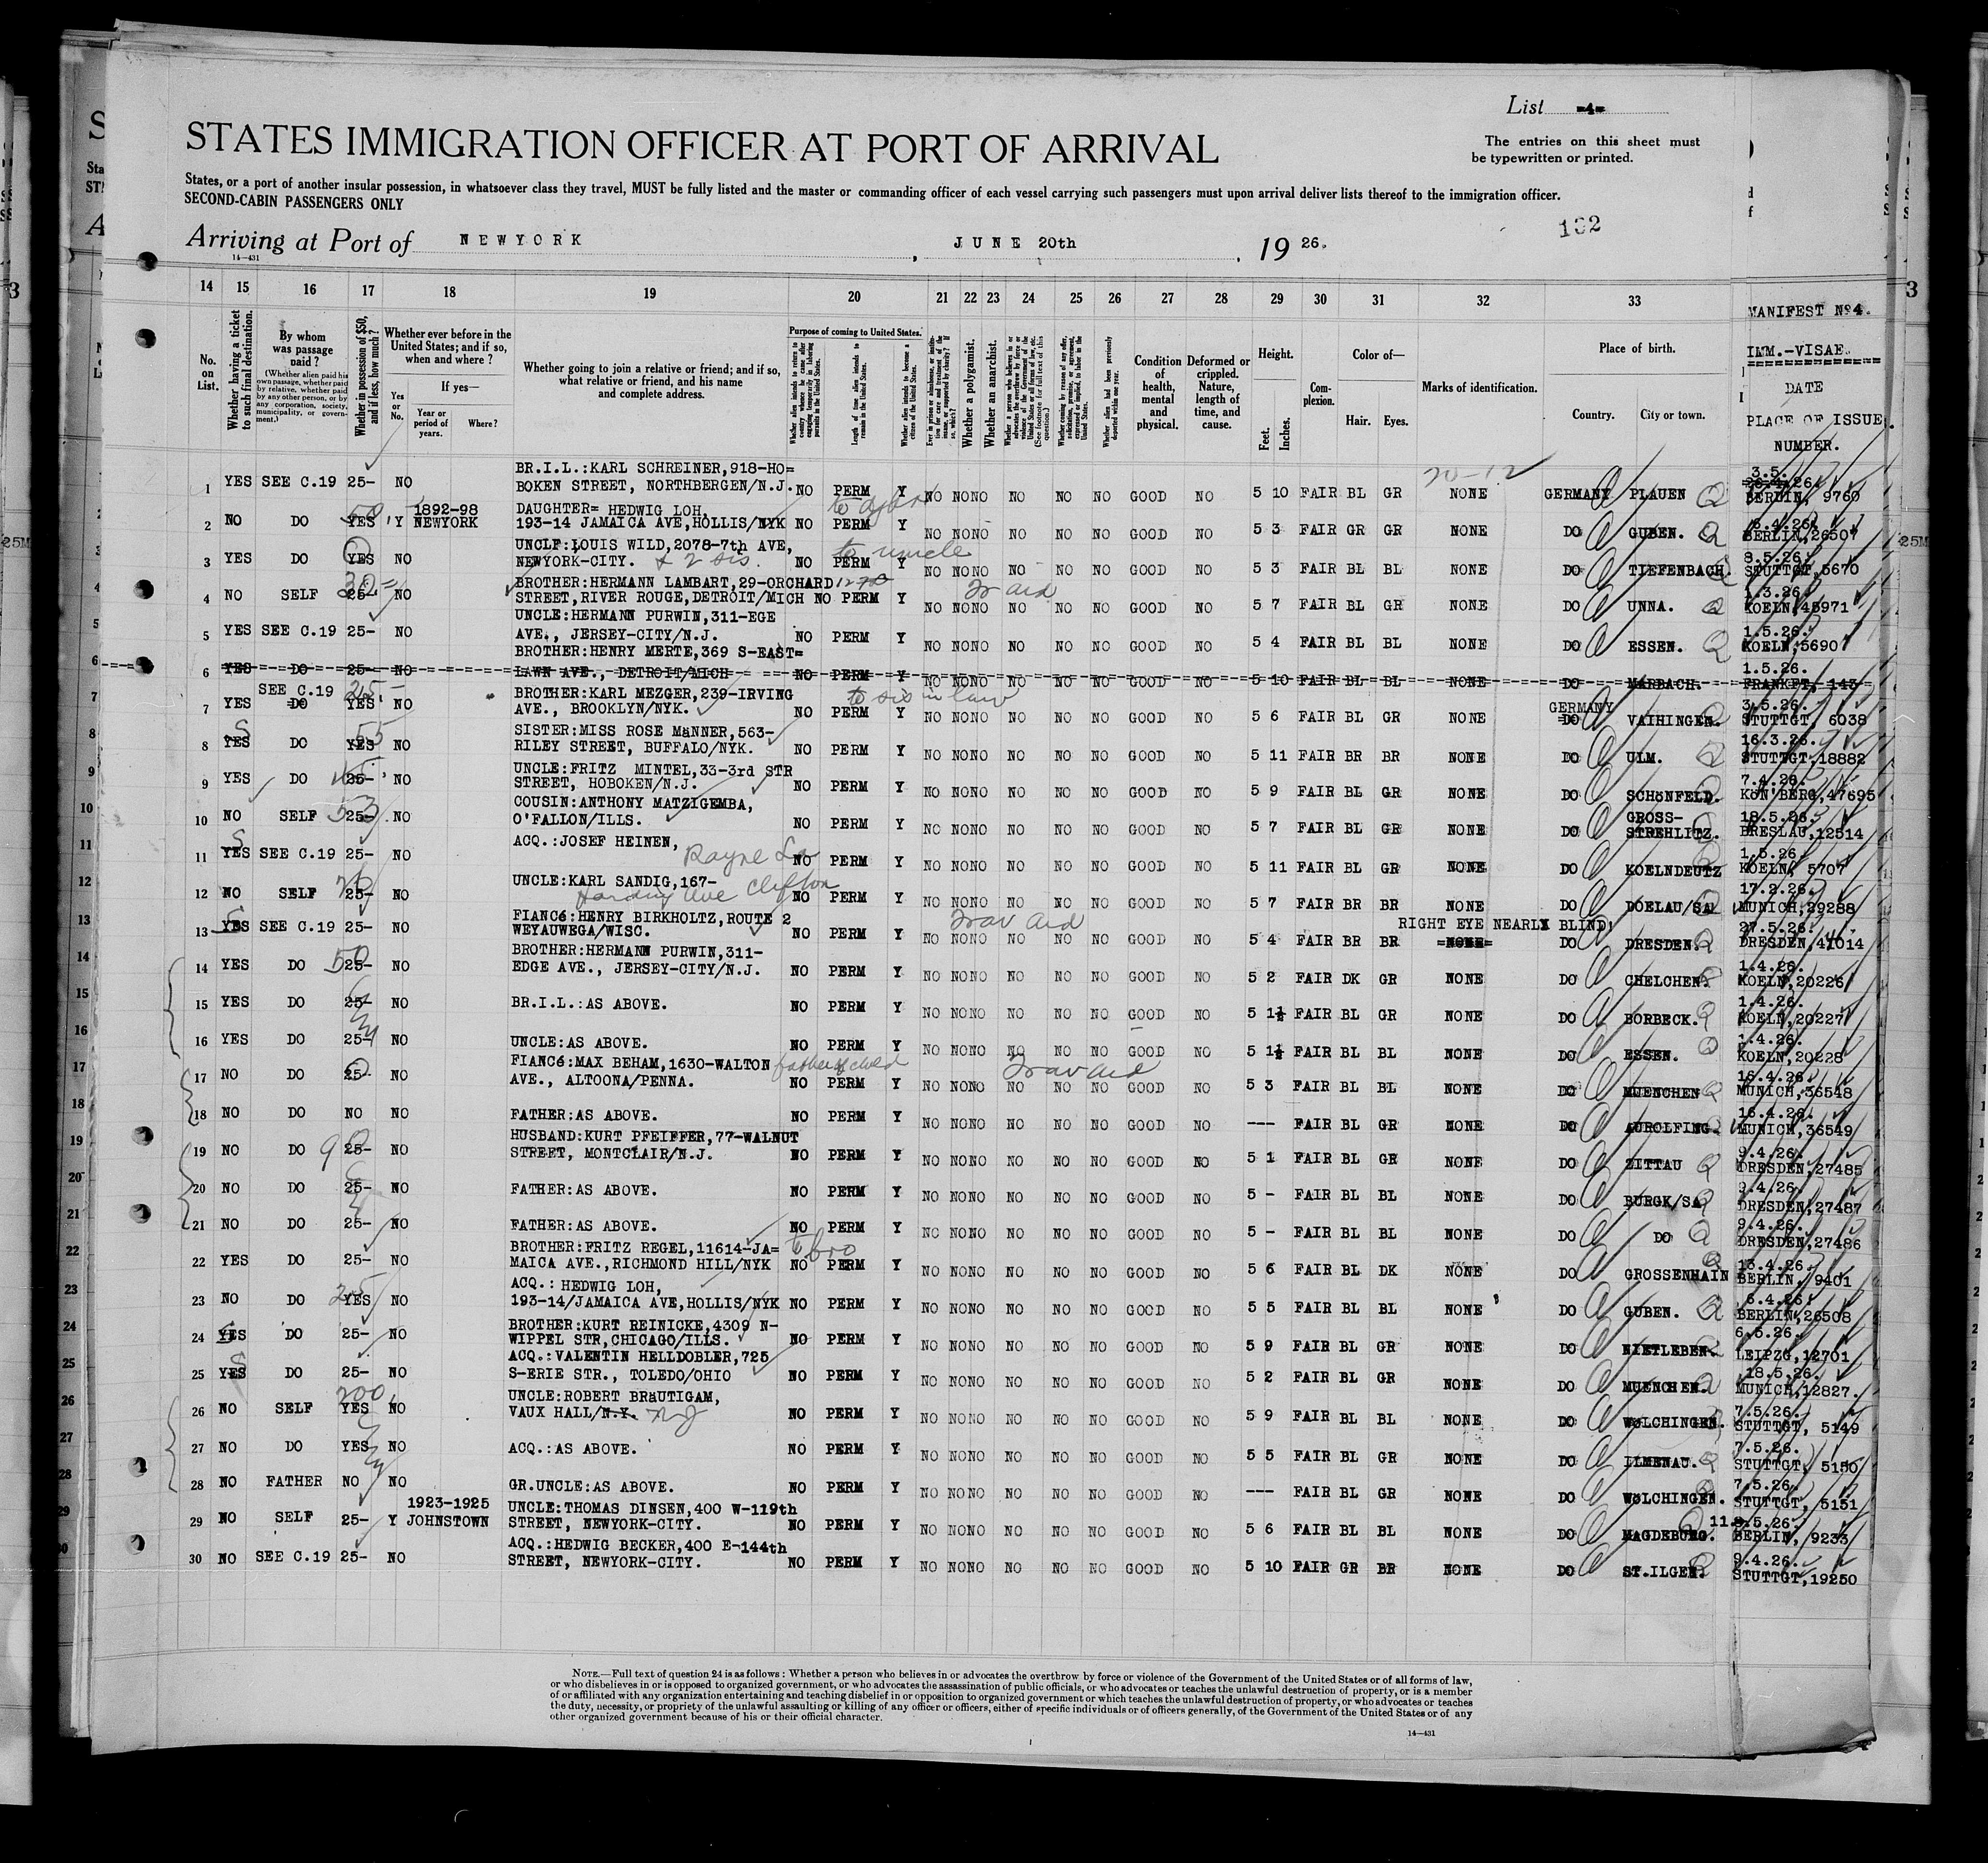 List -4-
STATES IMMIGRATION OFFICER AT PORT OF ARRIVAL
The entries on this sheet must
be typewritten or printed.
States, or a port of another insular possession, in whatsoever class they travel, MUST be fully listed and the master or commanding officer of each vessel carrying such passengers must upon arrival deliver lists thereof to the immigration officer.
SECOND-CABIN PASSENGERS ONLY
Arriving at Port of NEWYORK, JUNE 20th, 1926.
132
14—431
14 15 16 17 18 19 20 21 22 23 24 25 26 27 28 29 30 31 32 33
No. on List.
Whether having a ticket to such final destination.
By whom was passage paid?
(Whether alien paid his own passage, whether paid by relative, whether paid by any other person, or by any corporation, society, municipality, or government.)
Whether in possession of $50, and if less, how much?
Whether ever before in the United States; and if so, when and where?
Yes or No.
If yes—
Year or period of years.
Where?
Whether going to join a relative or friend; and if so, what relative or friend, and his name and complete address.
Purpose of coming to United States.
Whether alien intends to return to country whence he came after engaging temporarily in laboring pursuits in the United States.
Length of time alien intends to remain in the United States.
Whether alien intends to become a citizen of the United States.
Whether a polygamist.
Whether an anarchist.
Condition of health, mental and physical.
Deformed or crippled. Nature, length of time, and cause.
Height.
Feet. Inches.
Complexion.
Color of—
Hair. Eyes.
Marks of identification.
Place of birth.
Country. City or town.
MANIFEST №4.
IMM.-VISAE.
DATE
PLACE OF ISSUE.
NUMBER.
20-12
1 YES SEE C.19 25- NO BR.I.L.:KARL SCHREINER,918-HO=
BOKEN STREET, NORTHBERGEN/N.J. NO PERM Y NO NO NO NO NO NO GOOD NO 5 10 FAIR BL GR NONE GERMANY PLAUEN 3.5. BERLIN, 9760
2 NO DO YES Y 1892-98 NEWYORK DAUGHTER= HEDWIG LOH,
193-14 JAMAICA AVE,HOLLIS/NYK NO PERM Y NO NO NO NO NO NO GOOD NO 5 3 FAIR GR GR NONE DO GUBEN. 6.4.26. BERLIN,26507
3 YES DO YES NO UNCLE:LOUIS WILD,2078-7th AVE,
NEWYORK-CITY. & 2 sis. NO PERM to uncle Y NO NO NO NO NO NO GOOD NO 5 3 FAIR BL BL NONE DO TIEFENBACH 8.5.26. STUTTGT,5670
4 NO SELF 25- NO BROTHER:HERMANN LAMBART,29-ORCHARD
STREET,RIVER ROUGE,DETROIT/MICH NO PERM Y NO NO NO NO NO NO GOOD NO 5 7 FAIR BL GR NONE DO UNNA. 1.3.26. KOELN,45971
5 YES SEE C.19 25- NO UNCLE:HERMANN PURWIN,311-EGE
AVE., JERSEY-CITY/N.J. NO PERM Y NO NO NO NO NO NO GOOD NO 5 4 FAIR BL BL NONE DO ESSEN. 1.5.26. KOELN,5690
6 YES DO 25- NO BROTHER:HENRY MERTE,369 S-EAST=
LAWN AVE., DETROIT/MICH NO PERM Y NO NO NO NO NO NO GOOD NO 5 10 FAIR BL BL NONE DO MARBACH. 1.5.26. FRANKFT, 143
7 YES SEE C.19 DO YES NO BROTHER:KARL MEZGER,239-IRVING
AVE., BROOKLYN/NYK. NO PERM to sis in law Y NO NO NO NO NO NO GOOD NO 5 6 FAIR BL GR NONE GERMANY DO VAIHINGEN. 3.5.26. STUTTGT, 6038
8 YES DO YES 55 NO SISTER:MISS ROSE MäNNER,563-
RILEY STREET, BUFFALO/NYK. NO PERM Y NO NO NO NO NO NO GOOD NO 5 11 FAIR BR BR NONE DO ULM. 16.3.26. STUTTGT,18882
9 YES DO 25- NO UNCLE:FRITZ MINTEL,33-3rd STR
STREET, HOBOKEN/N.J. NO PERM Y NO NO NO NO NO NO GOOD NO 5 9 FAIR BL GR NONE DO SCHöNFELD. 7.4.26. KöN'BERG,47695
10 NO SELF 25- 53 NO COUSIN:ANTHONY MATZIGEMBA,
O'FALLON/ILLS. NO PERM Y NO NO NO NO NO NO GOOD NO 5 7 FAIR BL GR NONE DO GROSS-STREHLITZ. 18.5.26. BRESLAU,12514
11 YES SEE C.19 25- NO ACQ.:JOSEF HEINEN,
Rayne La NO PERM Y NO NO NO NO NO NO GOOD NO 5 11 FAIR BL GR NONE DO KOELNDEUTZ 1.5.26. KOELN, 5707
12 NO SELF 25- NO UNCLE:KARL SANDIG,167-
Harding ave Clifton NO PERM Y NO NO NO NO NO NO GOOD NO 5 7 FAIR BR BR NONE DO DOELAU/SA. 17.2.26. MUNICH,29288
13 YES SEE C.19 25- NO FIANCé:HENRY BIRKHOLTZ,ROUTE 2
WEYAUWEGA/WISC. NO PERM Y Trav aid NO NO NO NO NO NO GOOD NO 5 4 FAIR BR BR RIGHT EYE NEARLY BLIND. =NONE= DO DRESDEN. 27.5.26. DRESDEN,41014
14 YES DO 25- 50 NO BROTHER:HERMANN PURWIN,311-
EDGE AVE., JERSEY-CITY/N.J. NO PERM Y NO NO NO NO NO NO GOOD NO 5 2 FAIR DK GR NONE DO CHELCHEN. 1.4.26. KOELN,20226
15 YES DO 25- NO BR.I.L.:AS ABOVE. NO PERM Y NO NO NO NO NO NO GOOD NO 5 1½ FAIR BL GR NONE DO BORBECK. 1.4.26. KOELN,20227
16 YES DO 25- NO UNCLE:AS ABOVE. NO PERM Y NO NO NO NO NO NO GOOD NO 5 1½ FAIR BL BL NONE DO ESSEN. 1.4.26. KOELN,20228
17 NO DO 25- NO FIANCé:MAX BEHAM,1630-WALTON father of child
AVE., ALTOONA/PENNA. NO PERM Y Trav aid NO NO NO NO NO NO GOOD NO 5 3 FAIR BL BL NONE DO MUENCHEN 16.4.26. MUNICH,36548
18 NO DO NO NO FATHER:AS ABOVE. NO PERM Y NO NO NO NO NO NO GOOD NO --- FAIR BL GR NONE DO AUFOLFING. 16.4.26. MUNICH,36549
19 NO DO 25- NO HUSBAND:KURT PFEIFFER,77-WALNUT
STREET, MONTCLAIR/N.J. NO PERM Y NO NO NO NO NO NO GOOD NO 5 1 FAIR BL GR NONE DO ZITTAU 9.4.26. DRESDEN,27485
20 NO DO 25- NO FATHER:AS ABOVE. NO PERM Y NO NO NO NO NO NO GOOD NO 5 - FAIR BL BL NONE DO BURGK/SA. 9.4.26. DRESDEN,27487
21 NO DO 25- NO FATHER:AS ABOVE. NO PERM Y NO NO NO NO NO NO GOOD NO 5 - FAIR BL BL NONE DO DO 9.4.26. DRESDEN,27486
22 YES DO 25- NO BROTHER:FRITZ REGEL,11614-JA= to bro
MAICA AVE.,RICHMOND HILL/NYK NO PERM Y NO NO NO NO NO NO GOOD NO 5 6 FAIR BL DK NONE DO GROSSENHAIN 13.4.26. BERLIN. 9401
23 NO DO YES NO ACQ.: HEDWIG LOH,
193-14/JAMAICA AVE,HOLLIS/NYK NO PERM Y NO NO NO NO NO NO GOOD NO 5 5 FAIR BL BL NONE DO GUBEN. 6.4.26. BERLIN,26508
24 YES DO 25- NO BROTHER:KURT REINICKE,4309 N-
WIPPEL STR,CHICAGO/ILLS. NO PERM Y NO NO NO NO NO NO GOOD NO 5 9 FAIR BL GR NONE DO NIETLEBEN. 6.5.26. LEIPZG,12701
25 YES DO 25- NO ACQ.:VALENTIN HELLDOBLER,725
S-ERIE STR., TOLEDO/OHIO NO PERM Y NO NO NO NO NO NO GOOD NO 5 2 FAIR BL GR NONE DO MUENCHEN. 18.5.26. MUNICH,12827.
26 NO SELF YES 200 NO UNCLE:ROBERT BRäUTIGAM,
VAUX HALL/N.Y. NJ NO PERM Y NO NO NO NO NO NO GOOD NO 5 9 FAIR BL BL NONE DO WöLCHINGEN. 7.5.26. STUTTGT, 5149
27 NO DO YES NO ACQ.:AS ABOVE. NO PERM Y NO NO NO NO NO NO GOOD NO 5 5 FAIR BL GR NONE DO ILMENAU. 7.5.26. STUTTGT, 5150
28 NO FATHER NO NO GR.UNCLE:AS ABOVE. NO PERM Y NO NO NO NO NO NO GOOD NO --- FAIR BL GR NONE DO WöLCHINGEN. 7.5.26. STUTTGT, 5151
29 NO SELF 25- Y 1923-1925 JOHNSTOWN UNCLE:THOMAS DINSEN,400 W-119th
STREET, NEWYORK-CITY. NO PERM Y NO NO NO NO NO NO GOOD NO 5 6 FAIR BL BL NONE DO MAGDEBURG. 11.5.26. BERLIN, 9233
30 NO SEE C.19 25- NO ACQ.:HEDWIG BECKER,400 E-144th
STREET, NEWYORK-CITY. NO PERM Y NO NO NO NO NO NO GOOD NO 5 10 FAIR GR BR NONE DO ST.ILGEN. 9.4.26. STUTTGT,19250
NOTE.—Full text of question 24 is as follows: Whether a person who believes in or advocates the overthrow by force or violence of the Government of the United States or of all forms of law,
or who disbelieves in or is opposed to organized government, or who advocates the assassination of public officials, or who advocates or teaches the unlawful destruction of property, or is a member
of or affiliated with any organization entertaining and teaching disbelief in or opposition to organized government or which teaches the unlawful destruction of property, or who advocates or teaches
the duty, necessity, or propriety of the unlawful assaulting or killing of any officer or officers, either of specific individuals or of officers generally, of the Government of the United States or of any
other organized government because of his or their official character.
14—431